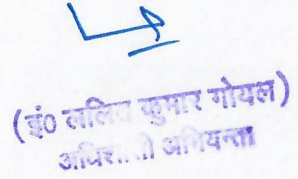 (इं० ललित कुमार गोयल)
अधिशासी अभियन्ता